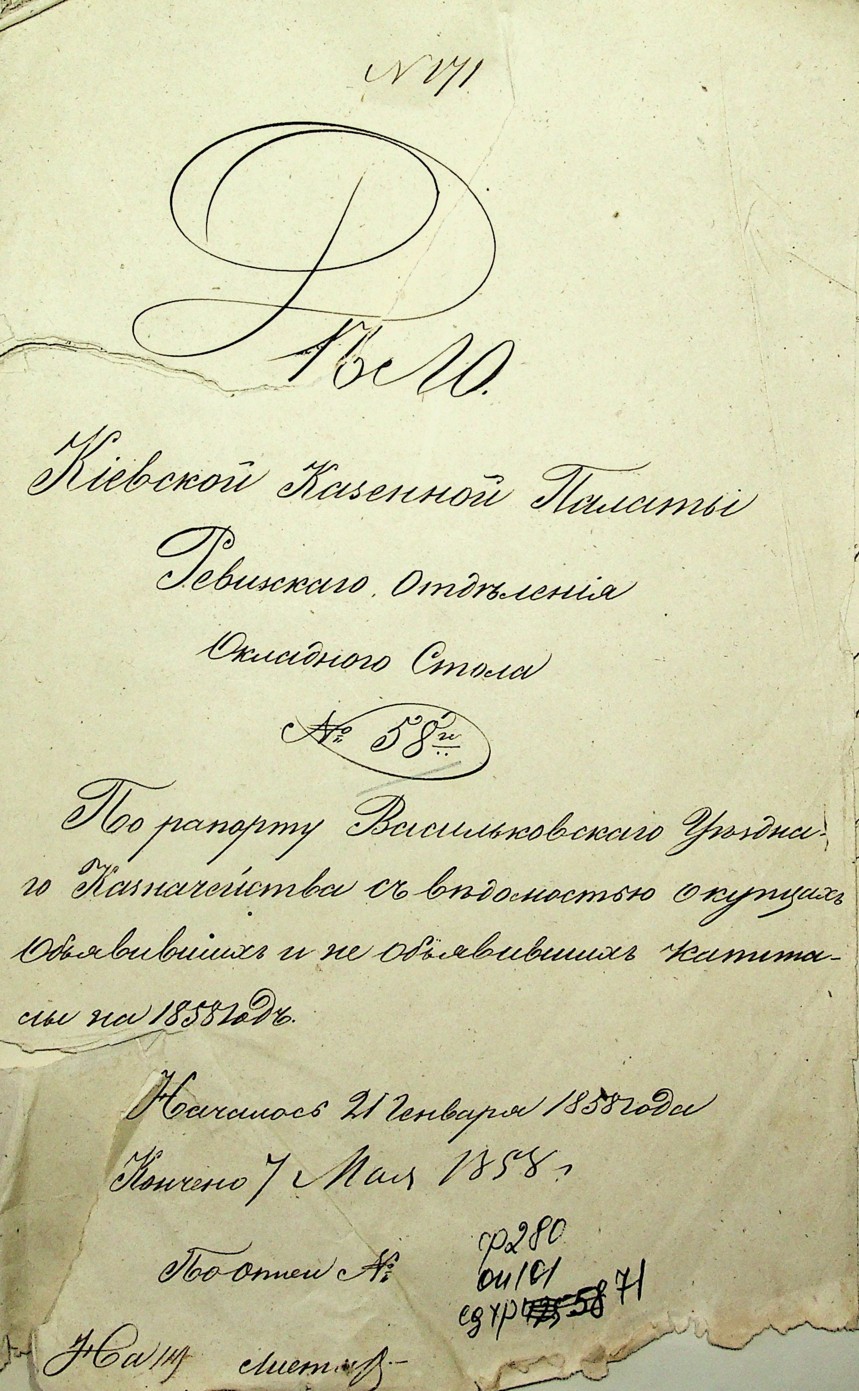 N 171
Дѣло.
Кіевской Казенной Палаты
Ревижскаго Отдѣленія
Окладного Стола
№ 58й
По рапорту Васильковскаго Уѣздна-
го Казначейства съ вѣдомостью о купцахъ
объявившихъ и не объявившихъ капита-
лы на 1858 годъ.
Началось 21 Генваря 1858 года
Кончено 7 Мая 1858 г
По описи №
ф 280
оп 101
ед хр 71
На листахъ